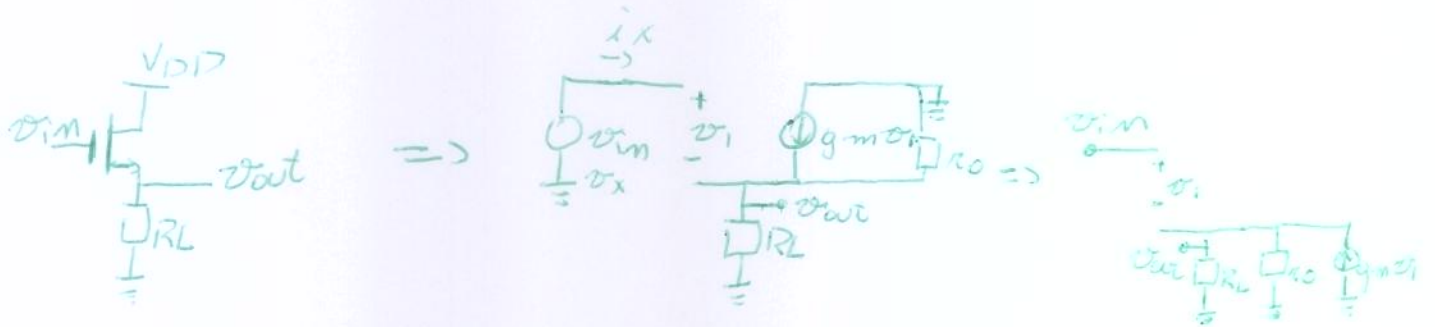 VDD
vin
vout
RL
=>
ix
→
vin
vx
+
v1
-
gmv1
ro
vout
RL
=>
vin
+
v1
-
vout
RL
ro
gmv1